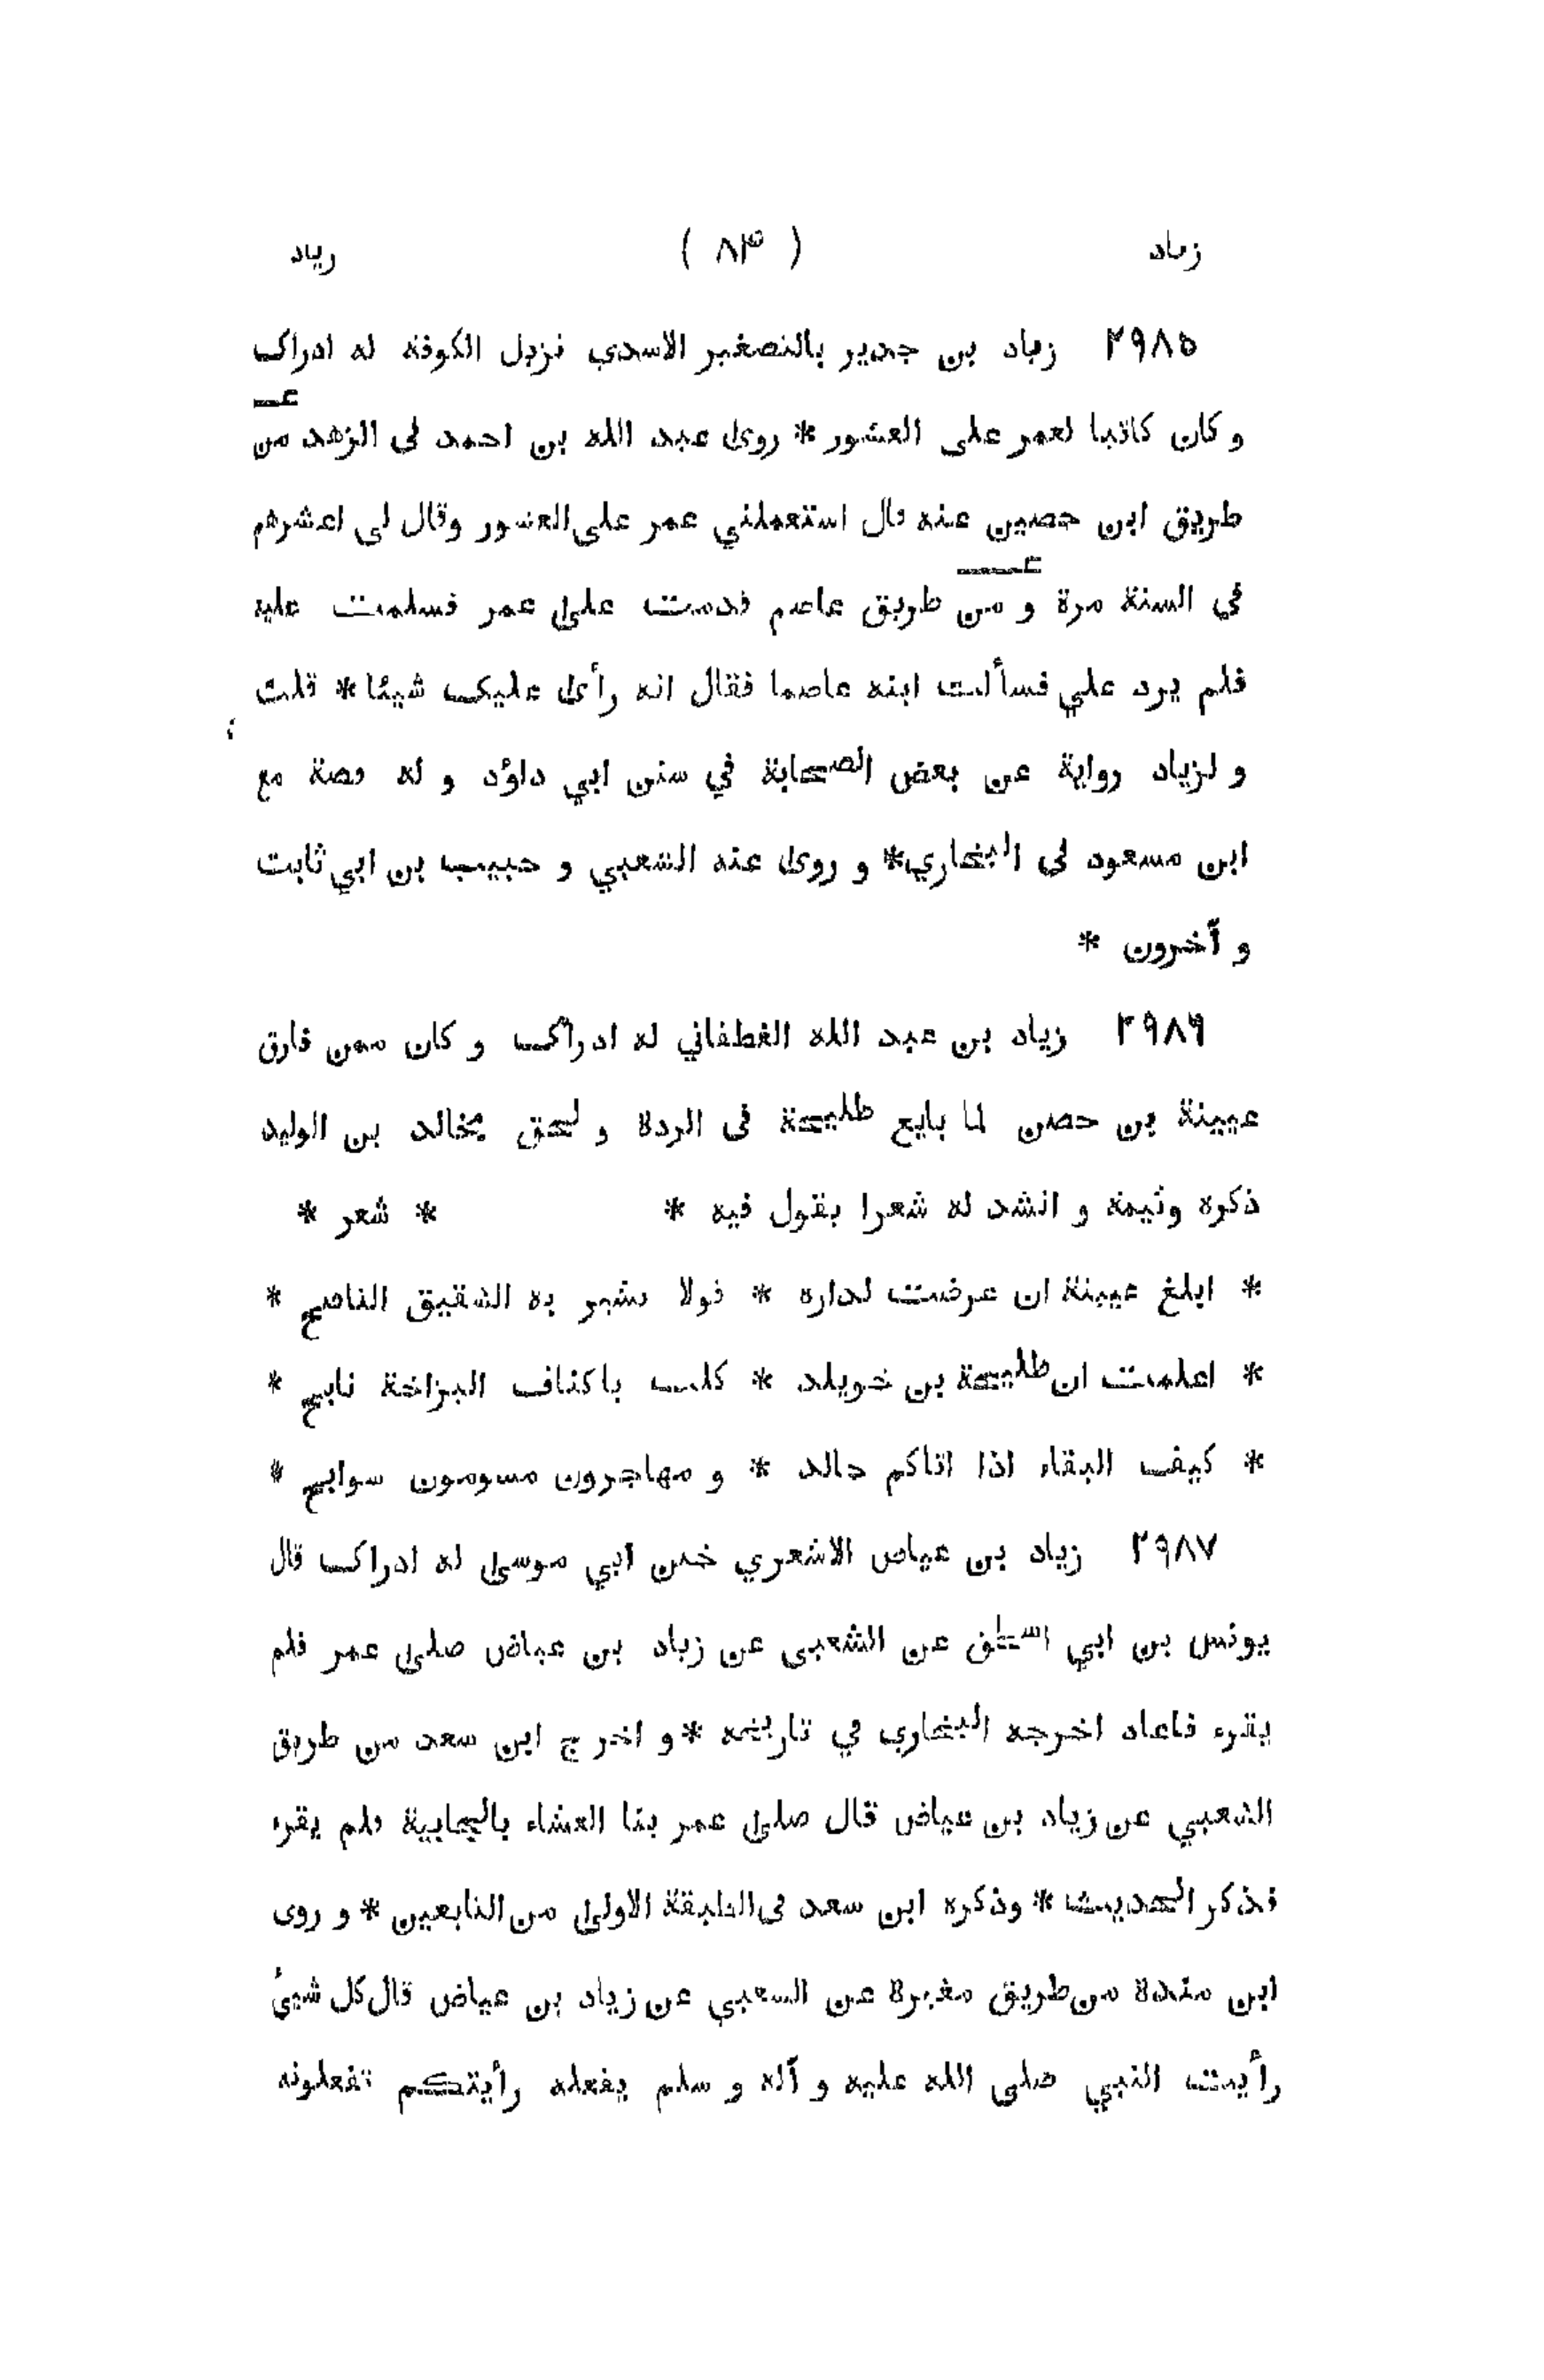 زياد ( ٨٣ ) زياد
٢٩٨٥ زياد بن جدير بالتصغير الاسدي نزيل الكوفة له ادراك
و كان كاتبا لعمر على العشور * روى عبد الله بن احمد في الزهد من
طريق ابن حصين عنه قال استعملني عمر على العشور وقال لي اعشرهم
في السنة مرة و من طريق عاصم قدمت على عمر فسلمت عليه
فلم يرد علي فسألت ابنه عاصما فقال انه رأى عليك شيئا * قلت
و لزياد رواية عن بعض الصحابة في سنن ابي داؤد و له قصة مع
ابن مسعود في البخاري * و روى عنه الشعبي و حبيب بن ابي ثابت
و آخرون *
٢٩٨٦ زياد بن عبد الله الغطفاني له ادراك و كان ممن فارق
عيينة بن حصن لما بايع طليحة في الردة و لحق بخالد بن الوليد
ذكره وثيمة و انشد له شعرا يقول فيه * * شعر *
* ابلغ عيينة ان عرضت لداره * قولا يشير به الشقيق الناصح *
* اعلمت ان طليحة بن خويلد * كلب باكناف البزاخة نابح *
* كيف البقاء اذا اتاكم خالد * و مهاجرون مسومون سوابح *
٢٩٨٧ زياد بن عياض الاشعري ختن ابي موسى له ادراك قال
يونس بن ابي اسحق عن الشعبي عن زياد بن عياض صلى عمر فلم
يقرء فاعاد اخرجه البخاري في تاريخه * و اخرج ابن سعد من طريق
الشعبي عن زياد بن عياض قال صلى عمر بنا العشاء بالجابية فلم يقرء
فذكر الحديث * وذكره ابن سعد في الطبقة الاولى من التابعين * و روى
ابن مندة من طريق مغيرة عن الشعبي عن زياد بن عياض قال كل شيئ
رأيت النبي صلى الله عليه و آله و سلم يفعله رأيتكم تفعلونه